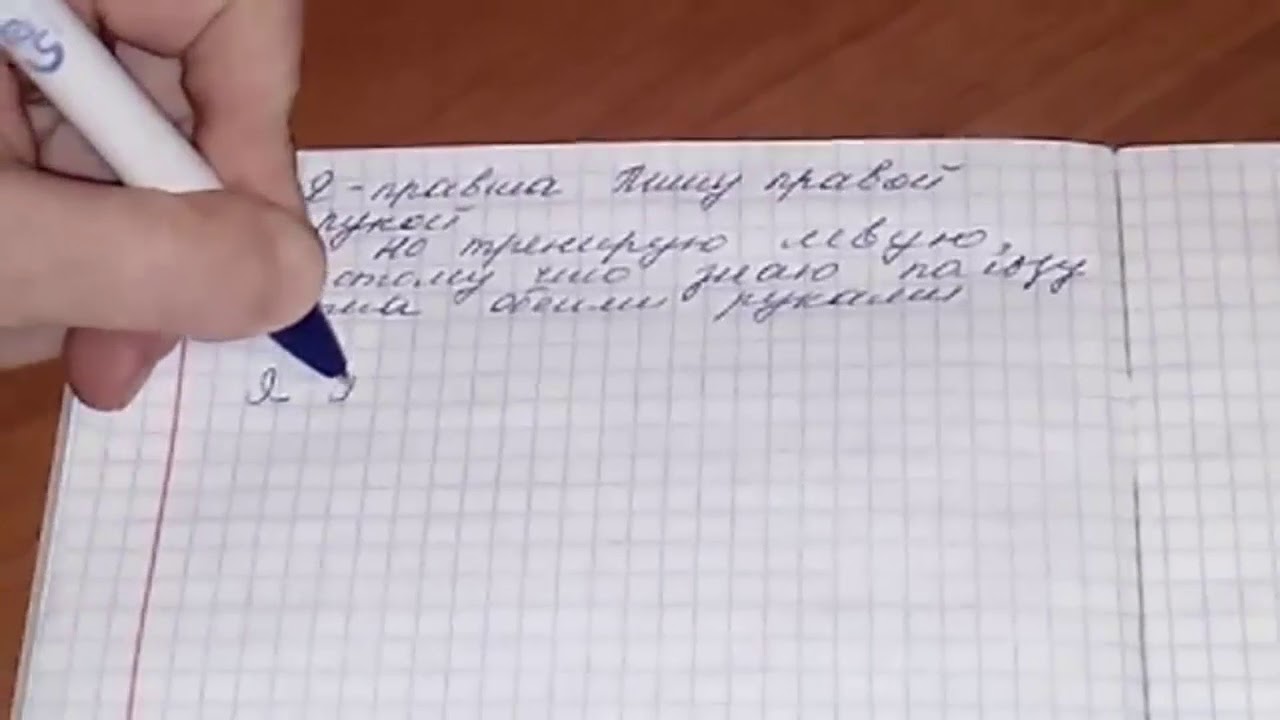 Я - правша Пишу правой
рукой
но тренирую левую,
потому что знаю пользу
обеими руками
Я